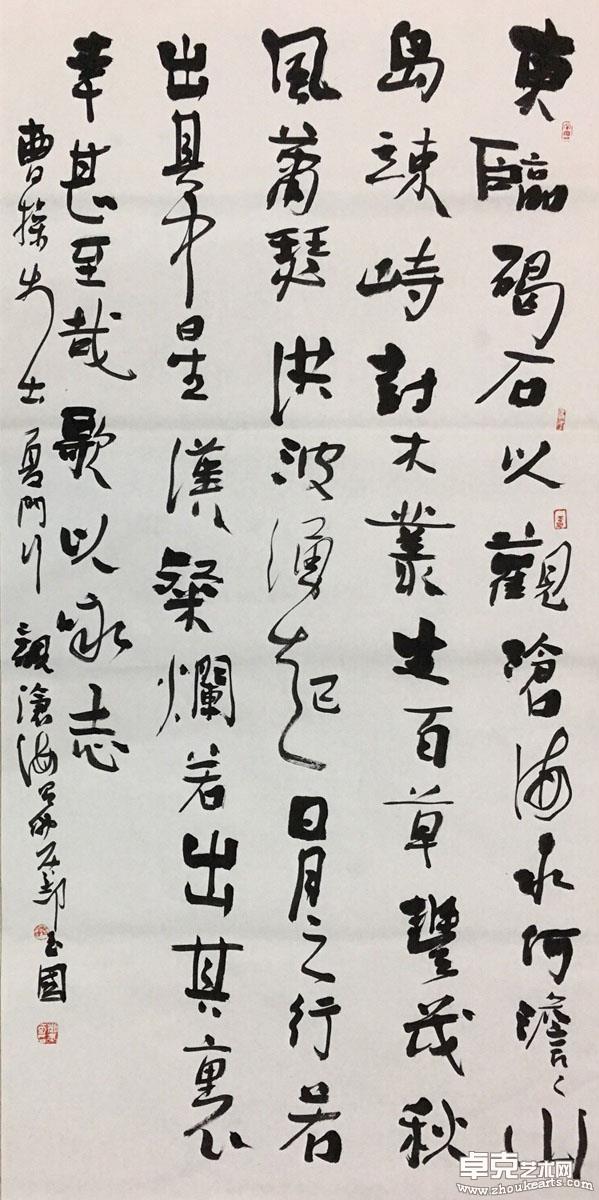 東臨碣石以觀滄海水何澹〻山
島竦峙尌木叢生百草豐茂秋
風蕭瑟洪波湧起日月之行若
出其中星漢粲爛若出其裏
幸甚至哉歌以咏志
曹操步出夏門行觀滄海玉國
卓克艺术网
www.zhoukearts.com